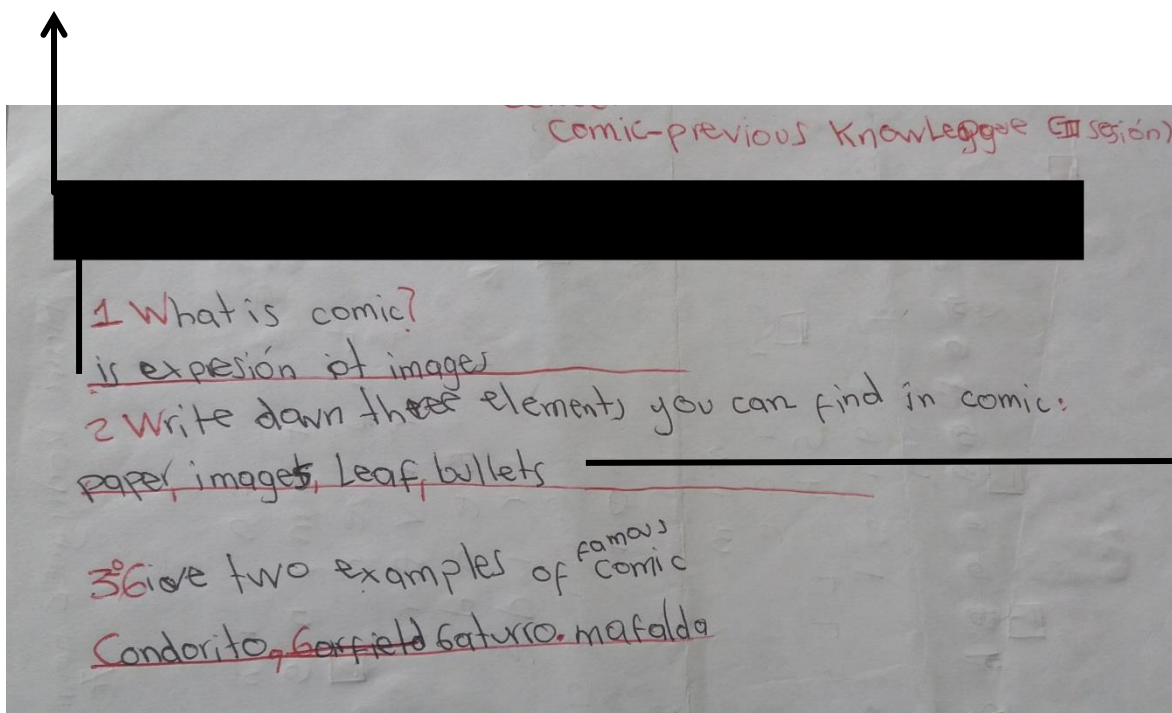 comic-previous Knowleggue (III sesión)
1 What is comic?
is expresión of images
2 Write dawn three elements you can find in comic:
paper, images, Leaf, bullets
3° Give two examples of famous comic
Condorito, Garfield Gaturro. mafalda